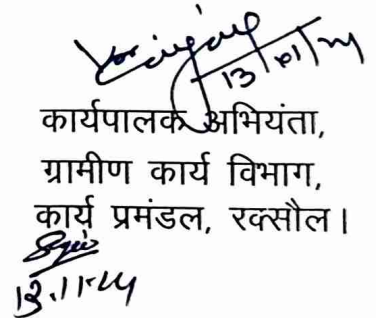 13/01/24
कार्यपालक अभियंता,
ग्रामीण कार्य विभाग,
कार्य प्रमंडल, रक्सौल।
13.11.24